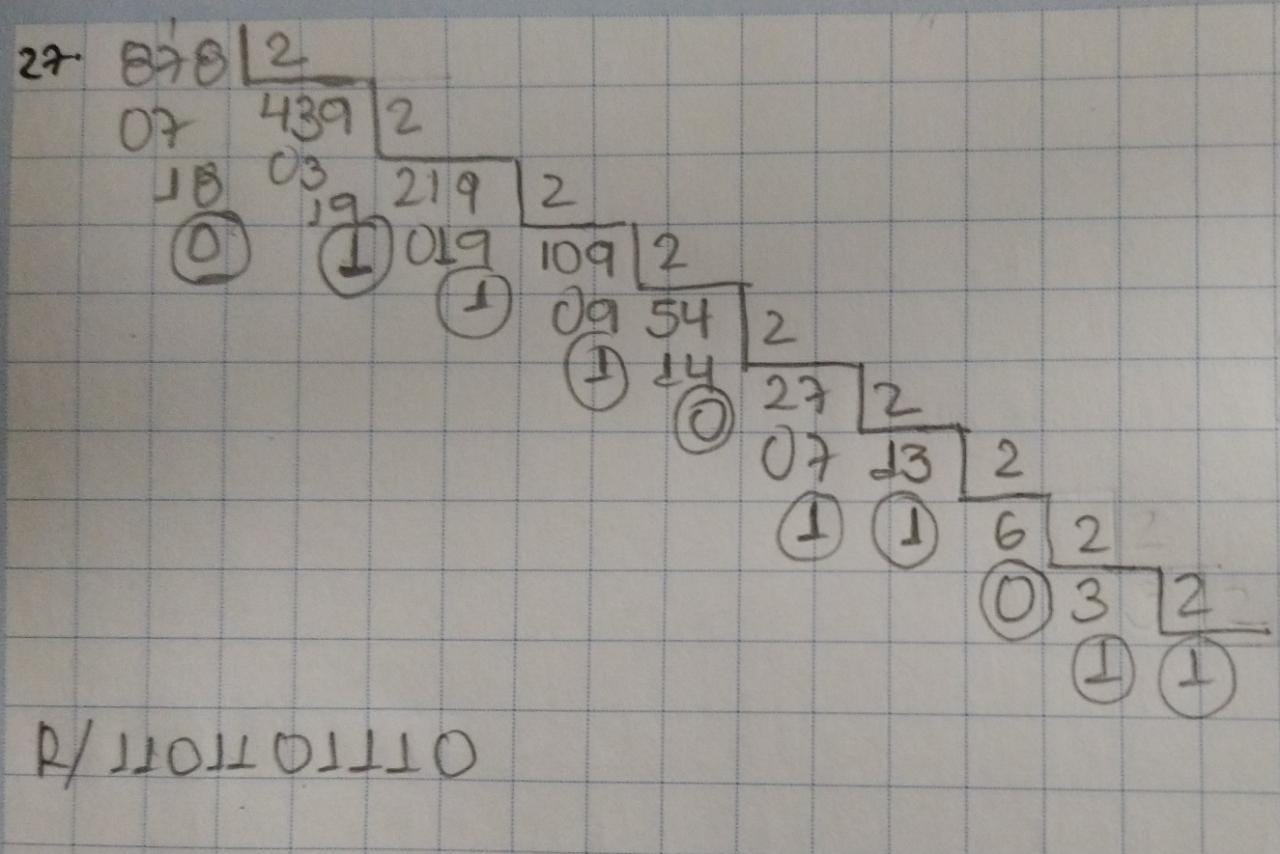 27. 878 2
07 439 2
18 03 219 2
0 19 019 109 2
1 1 09 54 2
1 14 27 2
0 07 13 2
1 1 6 2
0 3 2
1 1
R/ 1101101110